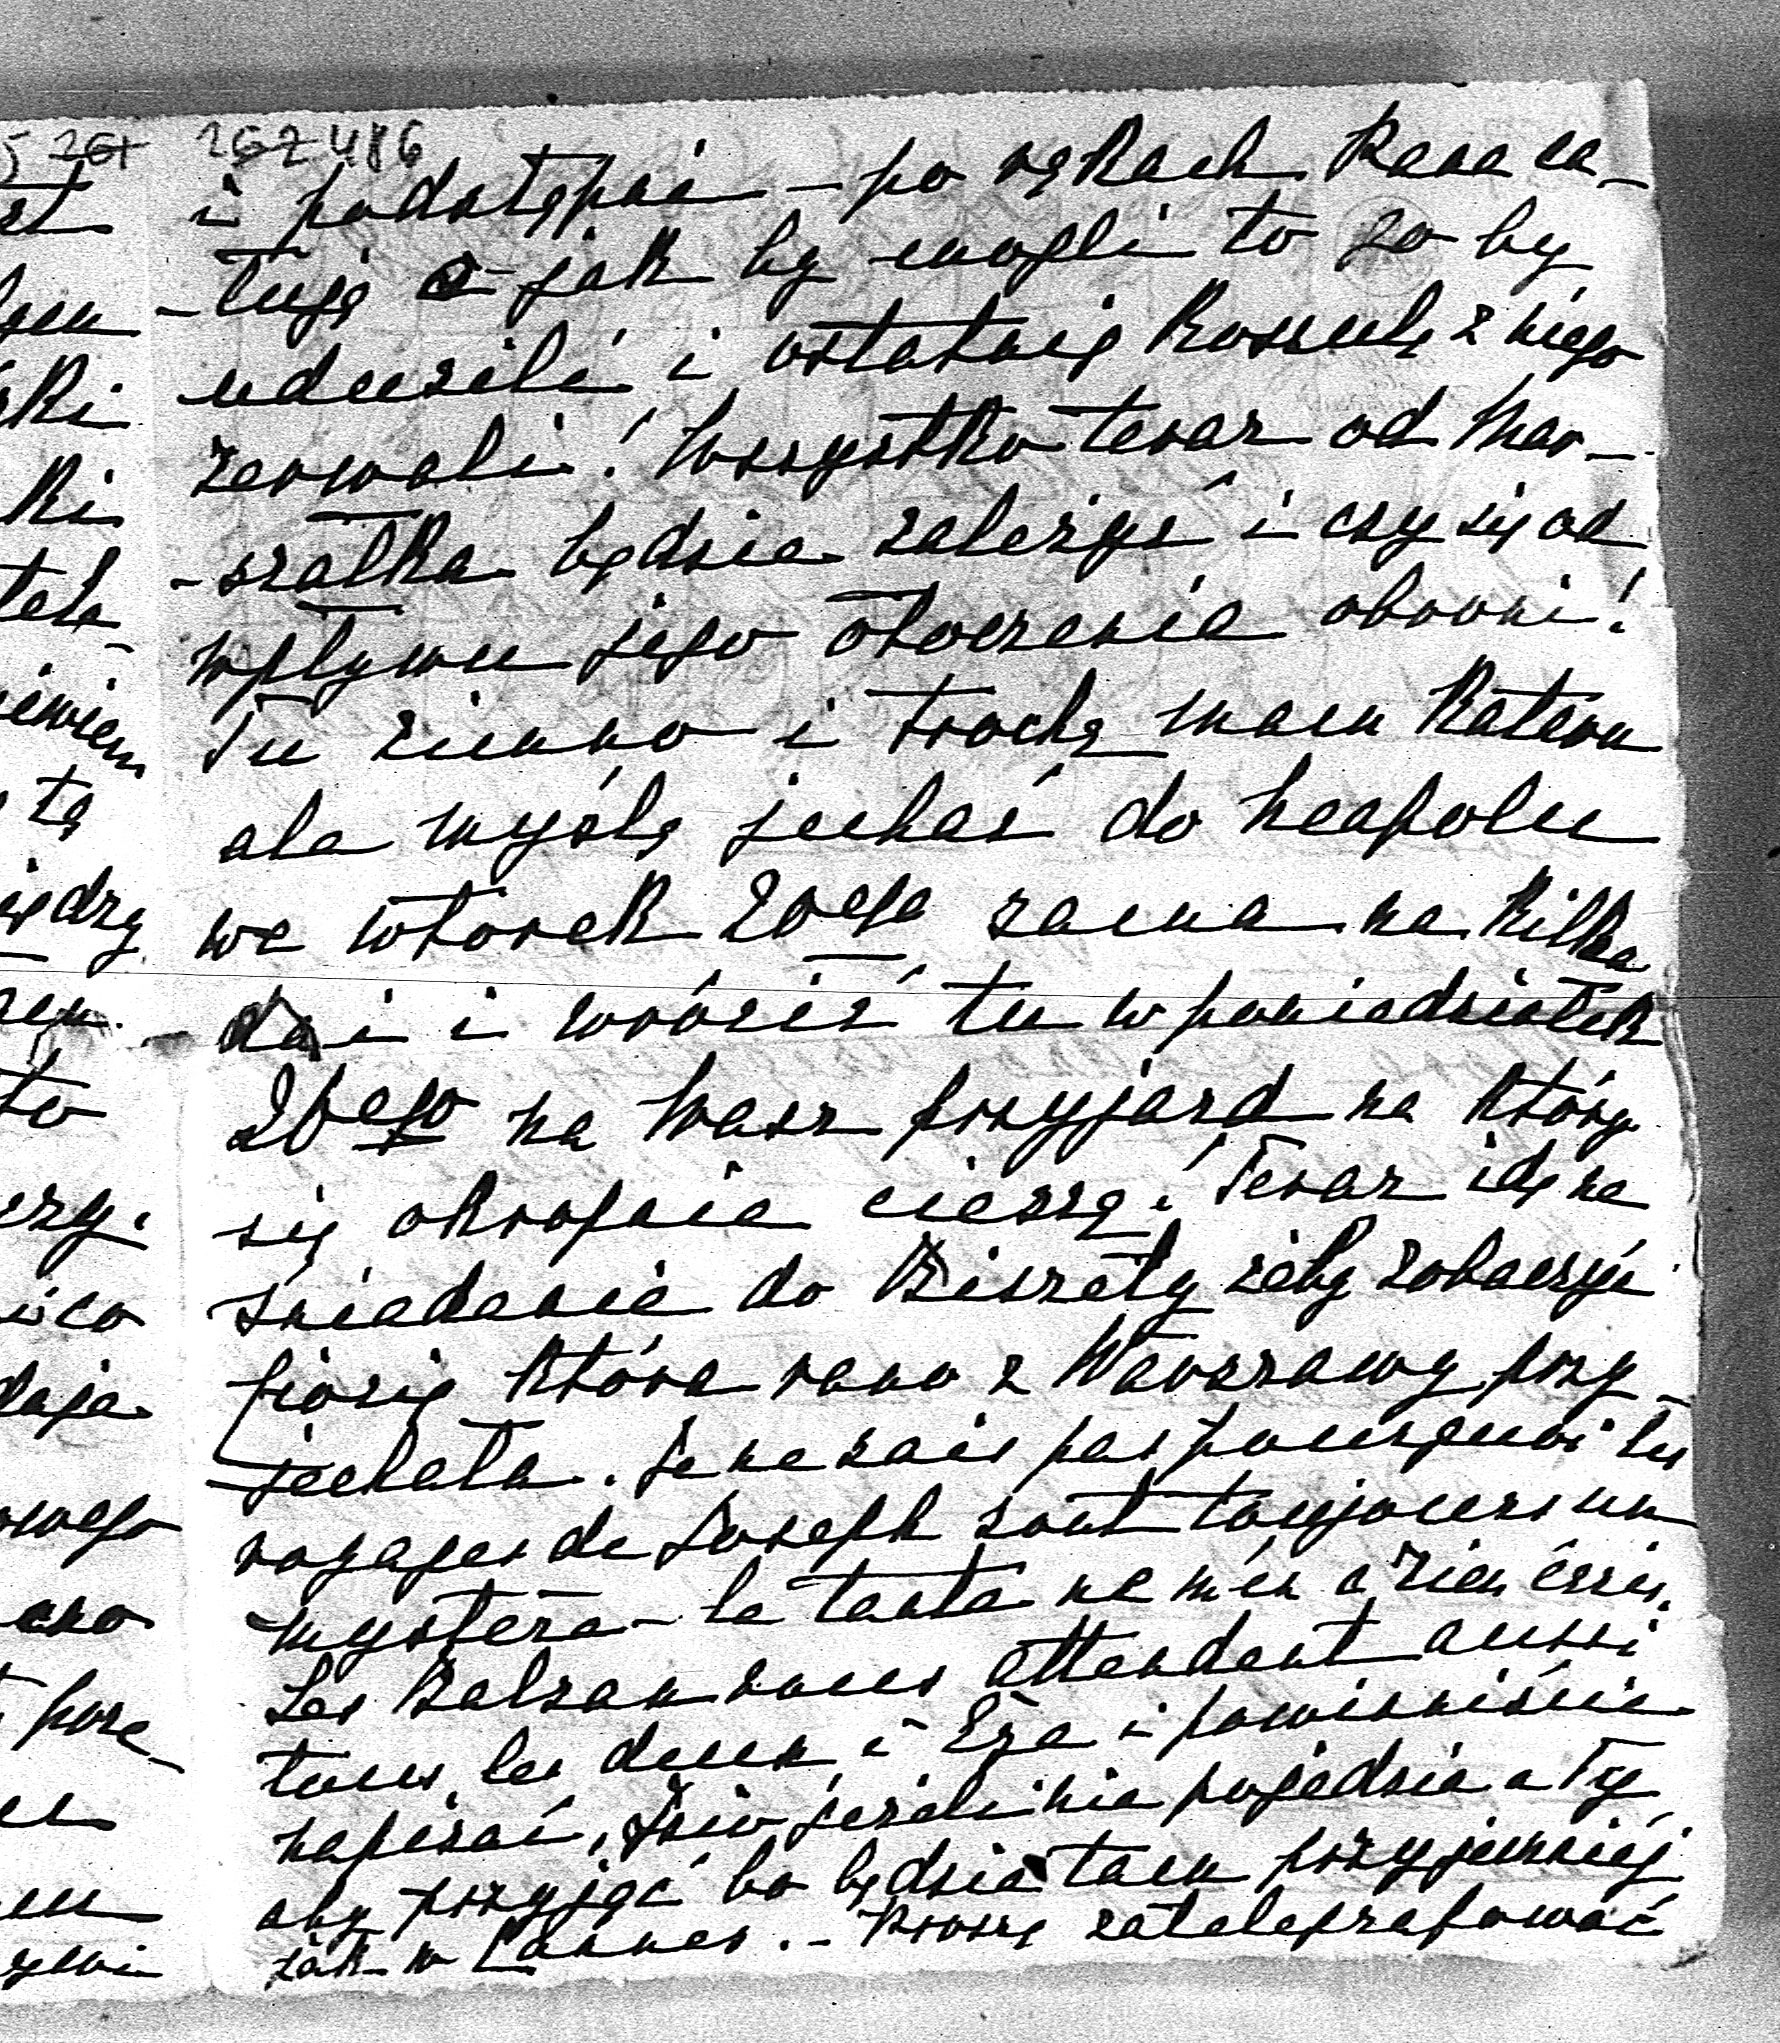 261 262 486
i podstępni – po rękach Rana ca-
-tuję a jak by mogli to go by
udusili i ostatnię koszulę z niego
zerwali! Wszystko teraz od Mar-
-szałka będzie zależyć i czy się od
wpływu jego otoczenia obroni!
Tu zimno i trochę mam kataru
ale myślę jechać do Neapolu
we wtorek 20ego sama na kilka
dni i wrócić tu w poniedziałek
26ego na Wasz przyjazd na który
się okropnie cieszę! Teraz idę na
śniadanie do Biszety żeby zobaczyć
która rano z Warszawy przy
-jechała. Je ne sais pas pourquoi les
voyages de Joseph sont toujours un
mystère – la tante ne m'en a rien écrit.
Les Balzan vous attendent aussi
tous les deux i Eza i powinniście
napisać, jeżeli nie pojedzie a Ty
aby przyjąć bo będzie tam przyjemniej
jak w Cannes. – Proszę zatelegrafować
st
ki
ki
tele-
tę
iędzy
to
daja
ano